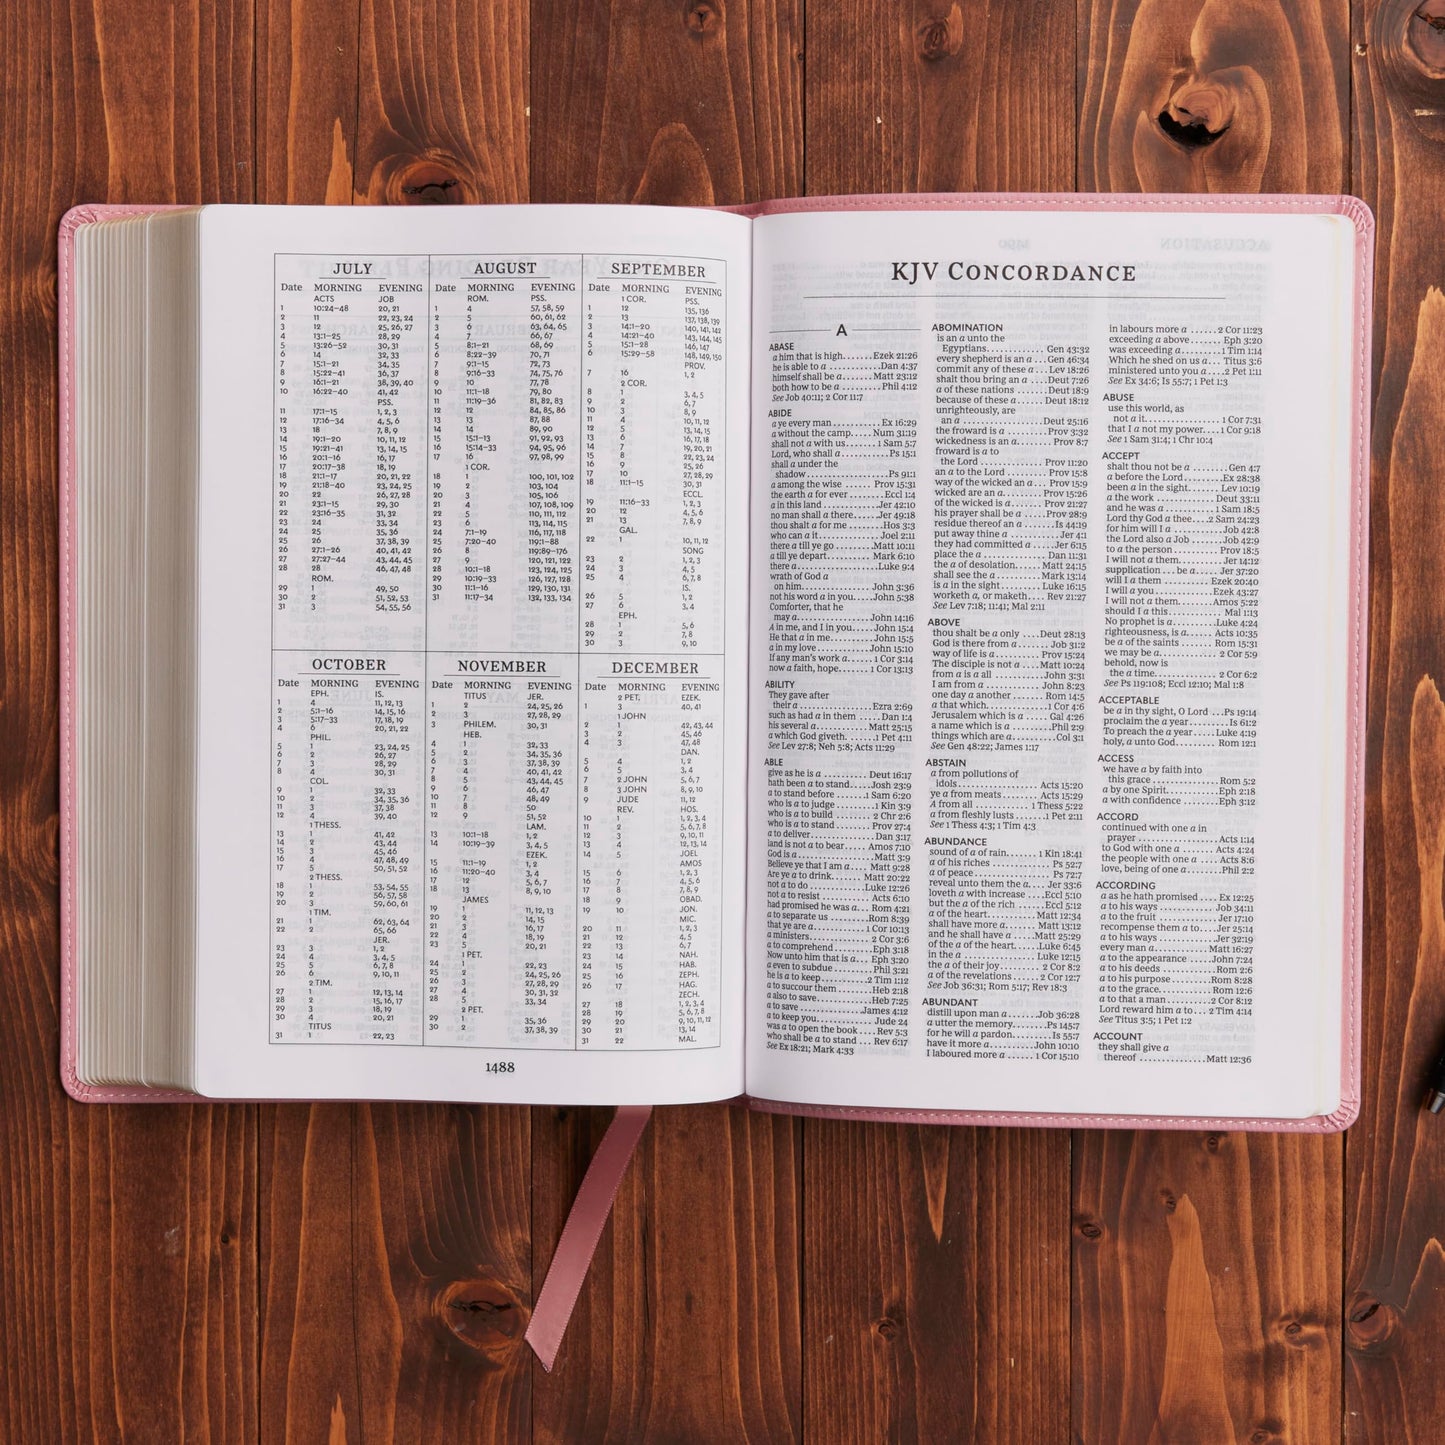 JULY
Date MORNING EVENING
ACTS JOB
1 10:24–48 20, 21
2 11 22, 23, 24
3 12 25, 26, 27
4 13:1–25 28, 29
5 13:26–52 30, 31
6 14 32, 33
7 15:1–21 34, 35
8 15:22–41 36, 37
9 16:1–21 38, 39, 40
10 16:22–40 41, 42
PSS.
11 17:1–15 1, 2, 3
12 17:16–34 4, 5, 6
13 18 7, 8, 9
14 19:1–20 10, 11, 12
15 19:21–41 13, 14, 15
16 20:1–16 16, 17
17 20:17–38 18, 19
18 21:1–17 20, 21, 22
19 21:18–40 23, 24, 25
20 22 26, 27, 28
21 23:1–15 29, 30
22 23:16–35 31, 32
23 24 33, 34
24 25 35, 36
25 26 37, 38, 39
26 27:1–26 40, 41, 42
27 27:27–44 43, 44, 45
28 28 46, 47, 48
ROM.
29 1 49, 50
30 2 51, 52, 53
31 3 54, 55, 56
AUGUST
Date MORNING EVENING
ROM. PSS.
1 4 57, 58, 59
2 5 60, 61, 62
3 6 63, 64, 65
4 7 66, 67
5 8:1–21 68, 69
6 8:22–39 70, 71
7 9:1–15 72, 73
8 9:16–33 74, 75, 76
9 10 77, 78
10 11:1–18 79, 80
11 11:19–36 81, 82, 83
12 12 84, 85, 86
13 13 87, 88
14 14 89, 90
15 15:1–13 91, 92, 93
16 15:14–33 94, 95, 96
17 16 97, 98, 99
1 COR.
18 1 100, 101, 102
19 2 103, 104
20 3 105, 106
21 4 107, 108, 109
22 5 110, 111, 112
23 6 113, 114, 115
24 7:1–19 116, 117, 118
25 7:20–40 119:1–88
26 8 119:89–176
27 9 120, 121, 122
28 10:1–18 123, 124, 125
29 10:19–33 126, 127, 128
30 11:1–16 129, 130, 131
31 11:17–34 132, 133, 134
SEPTEMBER
Date MORNING EVENING
1 COR. PSS.
1 12 135, 136
2 13 137, 138, 139
3 14:1–20 140, 141, 142
4 14:21–40 143, 144, 145
5 15:1–28 146, 147
6 15:29–58 148, 149, 150
PROV.
7 16 1, 2
2 COR.
8 1 3, 4, 5
9 2 6, 7
10 3 8, 9
11 4 10, 11, 12
12 5 13, 14, 15
13 6 16, 17, 18
14 7 19, 20, 21
15 8 22, 23, 24
16 9 25, 26
17 10 27, 28, 29
18 11:1–15 30, 31
ECCL.
19 11:16–33 1, 2, 3
20 12 4, 5, 6
21 13 7, 8, 9
GAL.
22 1 10, 11, 12
SONG
23 2 1, 2, 3
24 3 4, 5
25 4 6, 7, 8
IS.
26 5 1, 2
27 6 3, 4
EPH.
28 1 5, 6
29 2 7, 8
30 3 9, 10
OCTOBER
Date MORNING EVENING
EPH. IS.
1 4 11, 12, 13
2 5:1–16 14, 15, 16
3 5:17–33 17, 18, 19
4 6 20, 21, 22
PHIL.
5 1 23, 24, 25
6 2 26, 27
7 3 28, 29
8 4 30, 31
COL.
9 1 32, 33
10 2 34, 35, 36
11 3 37, 38
12 4 39, 40
1 THESS.
13 1 41, 42
14 2 43, 44
15 3 45, 46
16 4 47, 48, 49
17 5 50, 51, 52
2 THESS.
18 1 53, 54, 55
19 2 56, 57, 58
20 3 59, 60, 61
1 TIM.
21 1 62, 63, 64
22 2 65, 66
JER.
23 3 1, 2
24 4 3, 4, 5
25 5 6, 7, 8
26 6 9, 10, 11
2 TIM.
27 1 12, 13, 14
28 2 15, 16, 17
29 3 18, 19
30 4 20, 21
TITUS
31 1 22, 23
NOVEMBER
Date MORNING EVENING
TITUS JER.
1 2 24, 25, 26
2 3 27, 28, 29
3 PHILEM. 30, 31
HEB.
4 1 32, 33
5 2 34, 35, 36
6 3 37, 38, 39
7 4 40, 41, 42
8 5 43, 44, 45
9 6 46, 47
10 7 48, 49
11 8 50
12 9 51, 52
LAM.
13 10:1–18 1, 2
14 10:19–39 3, 4, 5
EZEK.
15 11:1–19 1, 2
16 11:20–40 3, 4
17 12 5, 6, 7
18 13 8, 9, 10
JAMES
19 1 11, 12, 13
20 2 14, 15
21 3 16, 17
22 4 18, 19
23 5 20, 21
1 PET.
24 1 22, 23
25 2 24, 25, 26
26 3 27, 28, 29
27 4 30, 31, 32
28 5 33, 34
2 PET.
29 1 35, 36
30 2 37, 38, 39
DECEMBER
Date MORNING EVENING
2 PET. EZEK.
1 3 40, 41
1 JOHN
2 1 42, 43, 44
3 2 45, 46
4 3 47, 48
DAN.
5 4 1, 2
6 5 3, 4
7 2 JOHN 5, 6, 7
8 3 JOHN 8, 9, 10
9 JUDE 11, 12
REV. HOS.
10 1 1, 2, 3, 4
11 2 5, 6, 7, 8
12 3 9, 10, 11
13 4 12, 13, 14
14 5 JOEL
AMOS
15 6 1, 2, 3
16 7 4, 5, 6
17 8 7, 8, 9
18 9 OBAD.
19 10 JON.
MIC.
20 11 1, 2, 3
21 12 4, 5
22 13 6, 7
23 14 NAH.
24 15 HAB.
25 16 ZEPH.
26 17 HAG.
ZECH.
27 18 1, 2, 3, 4
28 19 5, 6, 7, 8
29 20 9, 10, 11, 12
30 21 13, 14
31 22 MAL.
1488
KJV CONCORDANCE
A
ABASE
a him that is high......Ezek 21:26
he is able to a............Dan 4:37
himself shall be a.......Matt 23:12
both how to be a........Phil 4:12
See Job 40:11; 2 Cor 11:7
ABIDE
a ye every man............Ex 16:29
a without the camp.....Num 31:19
shall not a with us.......1 Sam 5:7
Lord, who shall a..........Ps 15:1
shall a under the
shadow....................Ps 91:1
a among the wise.....Prov 15:31
the earth a for ever.......Eccl 1:4
a in this land............Jer 42:10
no man shall a there....Jer 49:18
thou shalt a for me.......Hos 3:3
who can a it................Joel 2:11
there a till ye go.........Matt 10:11
a till ye depart..........Mark 6:10
there a.......................Luke 9:4
wrath of God a
on him...................John 3:36
not his word a in you.....John 5:38
Comforter, that he
may a....................John 14:16
A in me, and I in you.....John 15:4
He that a in me..........John 15:5
a in my love..............John 15:10
If any man's work a......1 Cor 3:14
now a faith, hope........1 Cor 13:13
ABILITY
They gave after
their a....................Ezra 2:69
such as had a in them.....Dan 1:4
his several a.............Matt 25:15
a which God giveth.......1 Pet 4:11
See Lev 27:8; Neh 5:8; Acts 11:29
ABLE
give as he is a..........Deut 16:17
hath been a to stand......Josh 23:9
a to stand before........1 Sam 6:20
who is a to judge..........1 Kin 3:9
who is a to build..........2 Chr 2:6
who is a to stand.........Prov 27:4
a to deliver................Dan 3:17
land is not a to bear......Amos 7:10
God is a....................Matt 3:9
Believe ye that I am a.....Matt 9:28
Are ye a to drink........Matt 20:22
not a to do...............Luke 12:26
not a to resist.............Acts 6:10
had promised he was a....Rom 4:21
a to separate us..........Rom 8:39
that ye are a..............1 Cor 10:13
a ministers.................2 Cor 3:6
a to comprehend..........Eph 3:18
Now unto him that is a....Eph 3:20
a even to subdue..........Phil 3:21
he is a to keep............2 Tim 1:12
a to succour them.........Heb 2:18
a also to save.............Heb 7:25
a to save..................James 4:12
a to keep you..............Jude 24
was a to open the book....Rev 5:3
who shall be a to stand...Rev 6:17
See Ex 18:21; Mark 4:33
ABOMINATION
is an a unto the
Egyptians..............Gen 43:32
every shepherd is an a....Gen 46:34
commit any of these a....Lev 18:26
shalt thou bring an a.....Deut 7:26
a of these nations........Deut 18:9
because of these a......Deut 18:12
unrighteously, are
an a....................Deut 25:16
the froward is a..........Prov 3:32
wickedness is an a........Prov 8:7
froward is a to
the Lord................Prov 11:20
an a to the Lord..........Prov 15:8
way of the wicked an a...Prov 15:9
wicked are an a.........Prov 15:26
of the wicked is a.......Prov 21:27
his prayer shall be a.....Prov 28:9
residue thereof an a.......Is 44:19
put away thine a...........Jer 4:1
they had committed a.....Jer 6:15
place the a...............Dan 11:31
the a of desolation......Matt 24:15
shall see the a..........Mark 13:14
is a in the sight........Luke 16:15
worketh a, or maketh.....Rev 21:27
See Lev 7:18; 11:41; Mal 2:11
ABOVE
thou shalt be a only.....Deut 28:13
God is there from a........Job 31:2
way of life is a.........Prov 15:24
The disciple is not a....Matt 10:24
from a is a all............John 3:31
I am from a...............John 8:23
one day a another.........Rom 14:5
a that which...............1 Cor 4:6
Jerusalem which is a......Gal 4:26
a name which is a.........Phil 2:9
things which are a.........Col 3:1
See Gen 48:22; James 1:17
ABSTAIN
a from pollutions of
idols...................Acts 15:20
ye a from meats..........Acts 15:29
A from all..............1 Thess 5:22
a from fleshly lusts......1 Pet 2:11
See 1 Thess 4:3; 1 Tim 4:3
ABUNDANCE
sound of a of rain.......1 Kin 18:41
a of his riches............Ps 52:7
a of peace.................Ps 72:7
reveal unto them the a....Jer 33:6
loveth a with increase....Eccl 5:10
but the a of the rich.....Eccl 5:12
a of the heart...........Matt 12:34
shall have more a........Matt 13:12
and he shall have a......Matt 25:29
of the a of the heart.....Luke 6:45
in the a..................Luke 12:15
the a of their joy.........2 Cor 8:2
a of the revelations.......2 Cor 12:7
See Job 36:31; Rom 5:17; Rev 18:3
ABUNDANT
distill upon man a........Job 36:28
a utter the memory.........Ps 145:7
for he will a pardon........Is 55:7
have it more a............John 10:10
I laboured more a........1 Cor 15:10
in labours more a........2 Cor 11:23
exceeding a above.........Eph 3:20
was exceeding a...........1 Tim 1:14
Which he shed on us a....Titus 3:6
ministered unto you a.....2 Pet 1:11
See Ex 34:6; Is 55:7; 1 Pet 1:3
ABUSE
use this world, as
not a it..................1 Cor 7:31
that I a not my power.....1 Cor 9:18
See 1 Sam 31:4; 1 Chr 10:4
ACCEPT
shalt thou not be a........Gen 4:7
a before the Lord.........Ex 28:38
been a in the sight.......Lev 10:19
a the work...............Deut 33:11
and he was a.............1 Sam 18:5
Lord thy God a thee.....2 Sam 24:23
for him will I a...........Job 42:8
the Lord also a Job.......Job 42:9
to a the person..........Prov 18:5
I will not a them.........Jer 14:12
supplication....be a......Jer 37:20
will I a them............Ezek 20:40
I will a you.............Ezek 43:27
I will not a them.........Amos 5:22
should I a this............Mal 1:13
No prophet is a...........Luke 4:24
righteousness, is a......Acts 10:35
be a of the saints........Rom 15:31
we may be a................2 Cor 5:9
behold, now is
the a time................2 Cor 6:2
See Ps 119:108; Eccl 12:10; Mal 1:8
ACCEPTABLE
be a in thy sight, O Lord...Ps 19:14
proclaim the a year.........Is 61:2
To preach the a year......Luke 4:19
holy, a unto God..........Rom 12:1
ACCESS
we have a by faith into
this grace................Rom 5:2
a by one Spirit............Eph 2:18
a with confidence.........Eph 3:12
ACCORD
continued with one a in
prayer...................Acts 1:14
to God with one a.........Acts 4:24
the people with one a.....Acts 8:6
love, being of one a.......Phil 2:2
ACCORDING
a as he hath promised.....Ex 12:25
a to his ways.............Job 34:11
a to the fruit.............Jer 17:10
recompense them a to.....Jer 25:14
a to his ways.............Jer 32:19
every man a..............Matt 16:27
a to the appearance......John 7:24
a to his deeds.............Rom 2:6
a to his purpose..........Rom 8:28
a to the grace............Rom 12:6
a to that a man...........2 Cor 8:12
Lord reward him a to.....2 Tim 4:14
See Titus 3:5; 1 Pet 1:2
ACCOUNT
they shall give a
thereof.................Matt 12:36